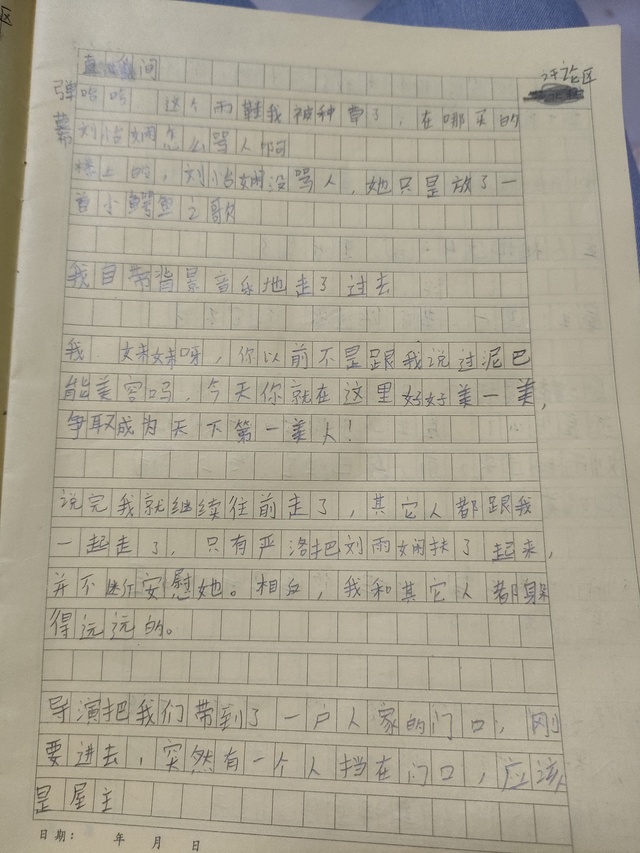 评论区
直播间
弹幕
哈哈 这个雨鞋我被种草了，在哪买的
刘怡娴怎么骂人啊
楼上的，刘怡娴没骂人，她只是放了一
首小鳄鱼之歌
我自带背景音乐地走了过去
我 妹妹呀，你以前不是跟我说过泥巴
能美容吗，今天你就在这里好好美一美，
争取成为天下第一美人！
说完我就继续往前走了，其它人都跟我
一起走了，只有严洛把刘雨娴扶了起来，
并不断安慰她。相反，我和其它人都躲
得远远的。
导演把我们带到了一户人家的门口，刚
要进去，突然有一个人挡在门口，应该
是屋主
日期： 年 月 日